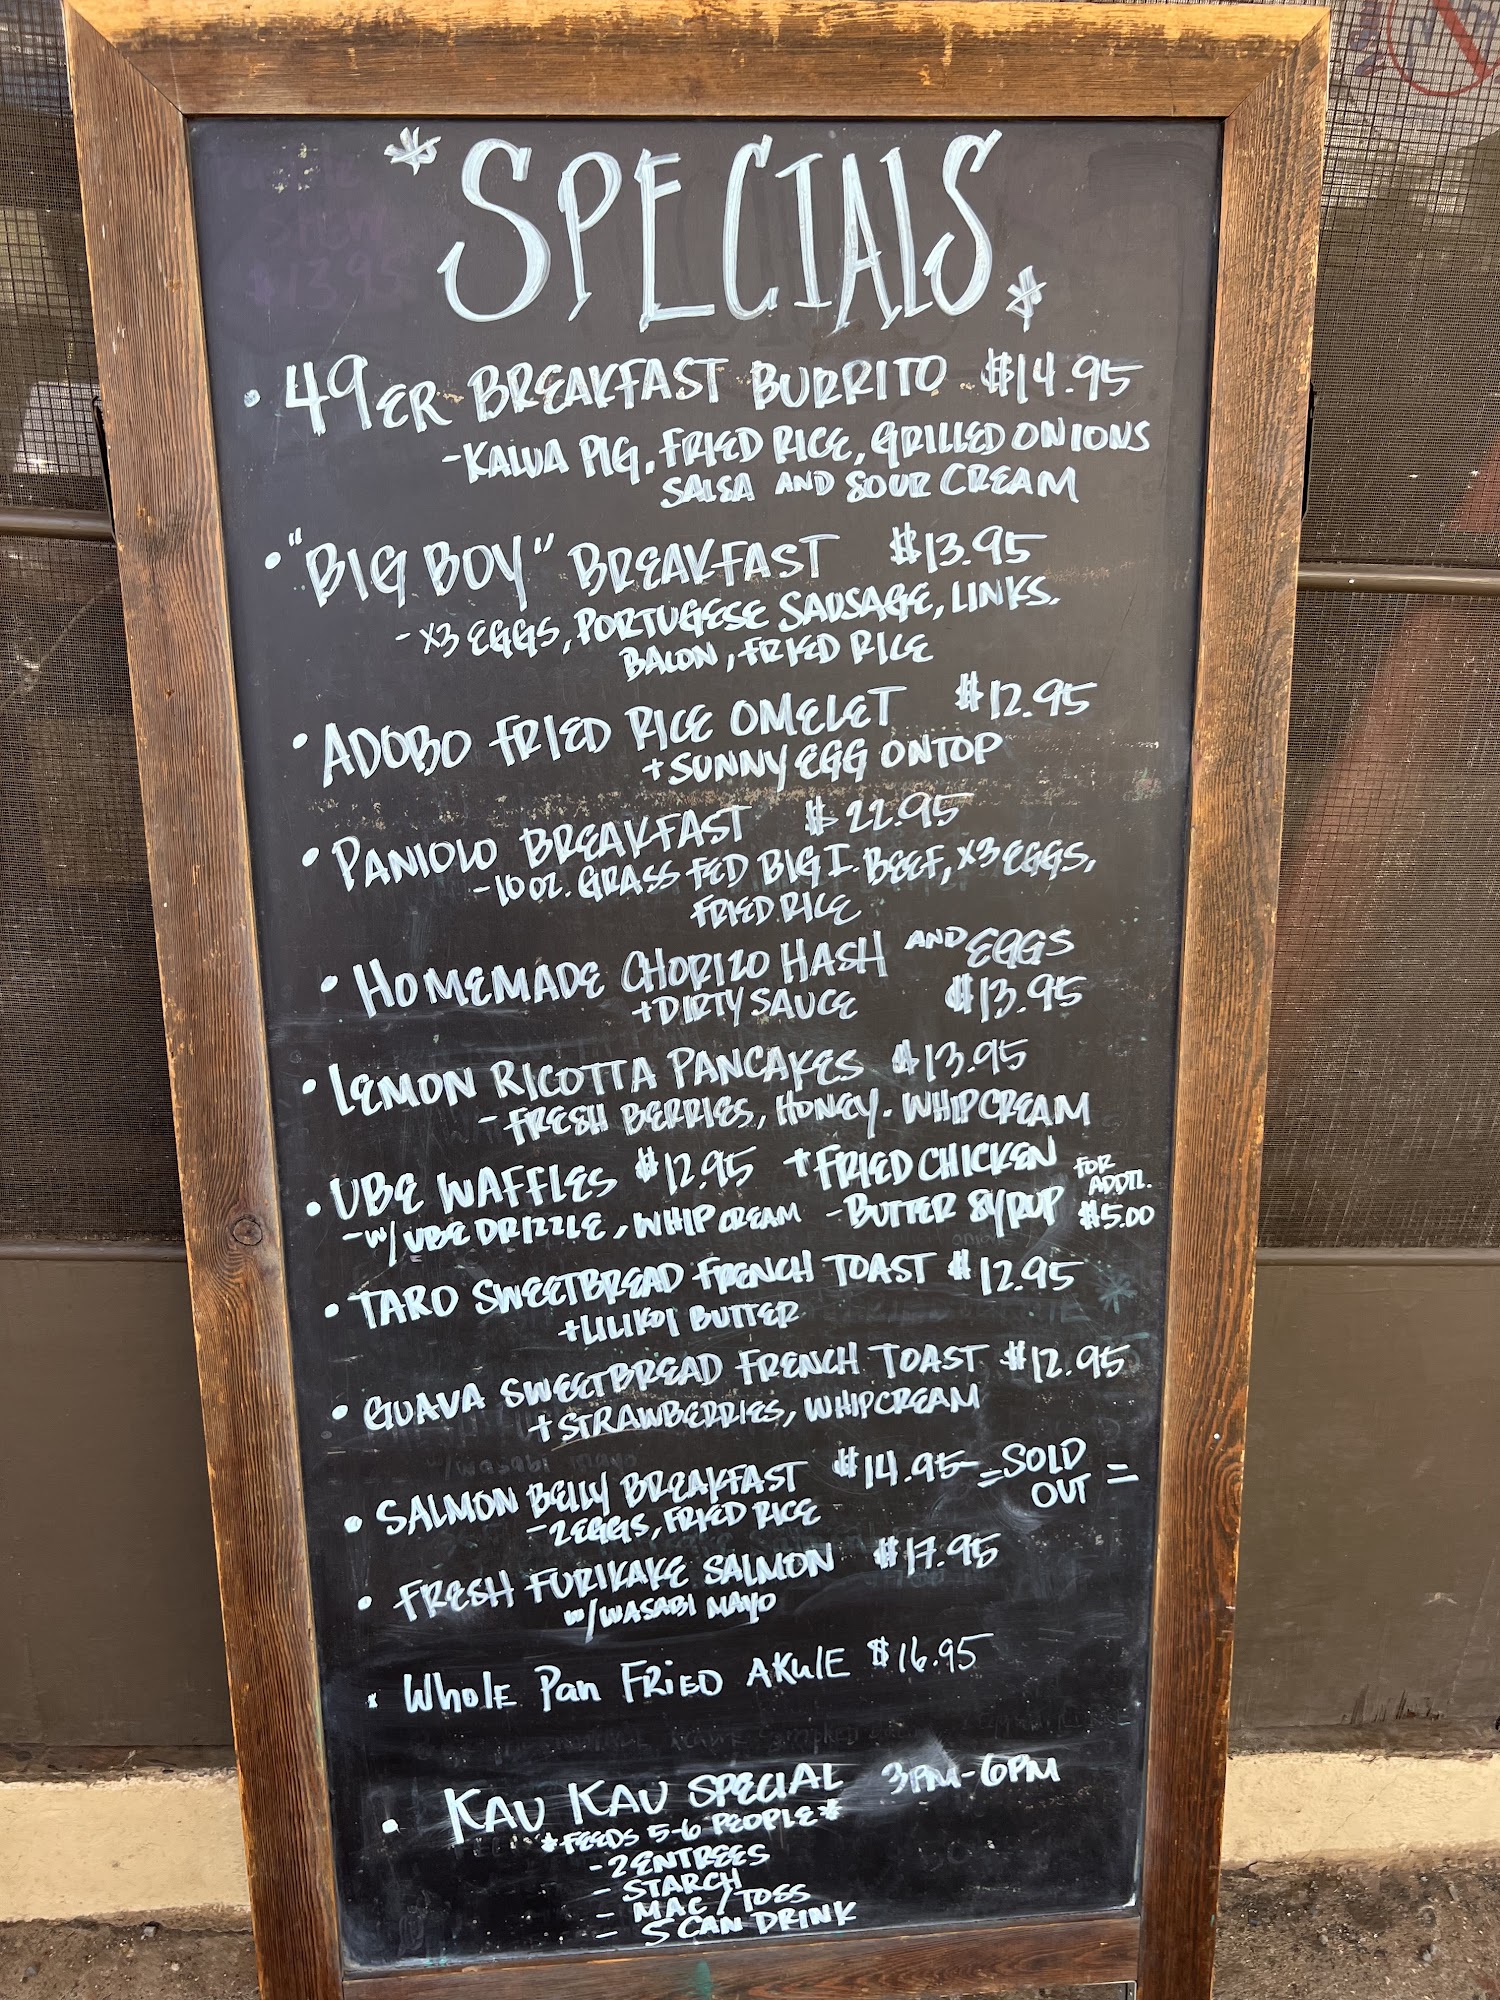 *SPECIALS*
• 49ER BREAKFAST BURRITO $14.95
- KALUA PIG, FRIED RICE, GRILLED ONIONS
SALSA AND SOUR CREAM
• "BIG BOY" BREAKFAST $13.95
- X3 EGGS, PORTUGESE SAUSAGE, LINKS,
BACON, FRIED RICE
• ADOBO FRIED RICE OMELET $12.95
+ SUNNY EGG ON TOP
• PANIOLO BREAKFAST $22.95
- 10 OZ. GRASS FED BIG I. BEEF, X3 EGGS,
FRIED RICE
• HOMEMADE CHORIZO HASH AND EGGS
+ DIRTY SAUCE $13.95
• LEMON RICOTTA PANCAKES $13.95
- FRESH BERRIES, HONEY. WHIP CREAM
• UBE WAFFLES $12.95 + FRIED CHICKEN FOR ADDTL.
- W/ UBE DRIZZLE, WHIP CREAM - BUTTER SYRUP $5.00
• TARO SWEETBREAD FRENCH TOAST $12.95
+ LILIKOI BUTTER
• GUAVA SWEETBREAD FRENCH TOAST $12.95
+ STRAWBERRIES, WHIPCREAM
• SALMON BELLY BREAKFAST $14.95 - = SOLD OUT =
- 2 EGGS, FRIED RICE
• FRESH FURIKAKE SALMON $17.95
W/ WASABI MAYO
• WHOLE PAN FRIED AKULE $16.95
• KAU KAU SPECIAL 3PM-6PM
*FEEDS 5-6 PEOPLE*
- 2 ENTREES
- STARCH
- MAC / TOSS
- 5 CAN DRINK